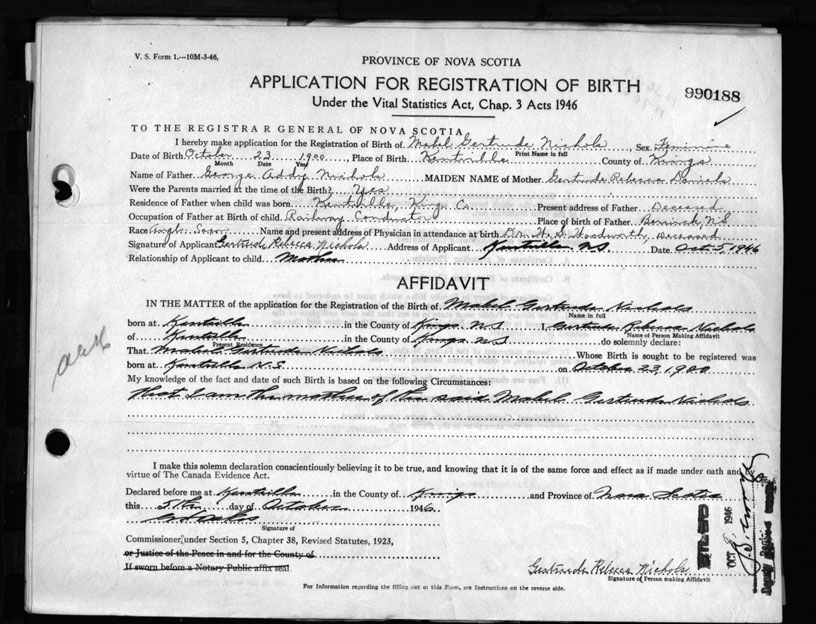 V. S. Form 1.—10M-3-46.
PROVINCE OF NOVA SCOTIA
APPLICATION FOR REGISTRATION OF BIRTH
990188
Under the Vital Statistics Act, Chap. 3 Acts 1946
TO THE REGISTRAR GENERAL OF NOVA SCOTIA
I hereby make application for the Registration of Birth of Mabel Gertrude Nichols, Sex Feminine
Print Name in full
Date of Birth October 23 1900, Place of Birth Kentville County of Kings
Month Date Year
Name of Father George Addy Nichols MAIDEN NAME of Mother Gertrude Rebecca Daniels
Were the Parents married at the time of the Birth? Yes
Residence of Father when child was born Kentville, Kings Co. Present address of Father Deceased
Occupation of Father at Birth of child Railway Conductor Place of birth of Father Berwick, N.S
Race Anglo Saxon Name and present address of Physician in attendance at birth Dr. W. S. Woodworth, Deceased
Signature of Applicant Gertrude Rebecca Nichols Address of Applicant Kentville N.S. Date Oct 5, 1946
Relationship of Applicant to child Mother
AFFIDAVIT
IN THE MATTER of the application for the Registration of the Birth of Mabel Gertrude Nichols
Name in full
born at Kentville in the County of Kings N.S I, Gertrude Rebecca Nichols
Name of Person Making Affidavit
of Kentville in the County of Kings N.S do solemnly declare:
Present Residence
That Mabel Gertrude Nichols Whose Birth is sought to be registered was
born at Kentville N.S. on October 23, 1900
My knowledge of the fact and date of such Birth is based on the following Circumstances:
that I am the mother of the said Mabel Gertrude Nichols
I make this solemn declaration conscientiously believing it to be true, and knowing that it is of the same force and effect as if made under oath and by
virtue of The Canada Evidence Act.
Declared before me at Kentville in the County of Kings and Province of Nova Scotia
this 5th day of October 1946
Signature of
Commissioner, under Section 5, Chapter 38, Revised Statutes, 1923,
or Justice of the Peace in and for the County of
If sworn before a Notary Public affix seal
Gertrude Rebecca Nichols
Signature of Person making Affidavit
For Information regarding the filling out of this Form, see Instructions on the reverse side.
FILED
OCT 8 1946
Deputy Registrar